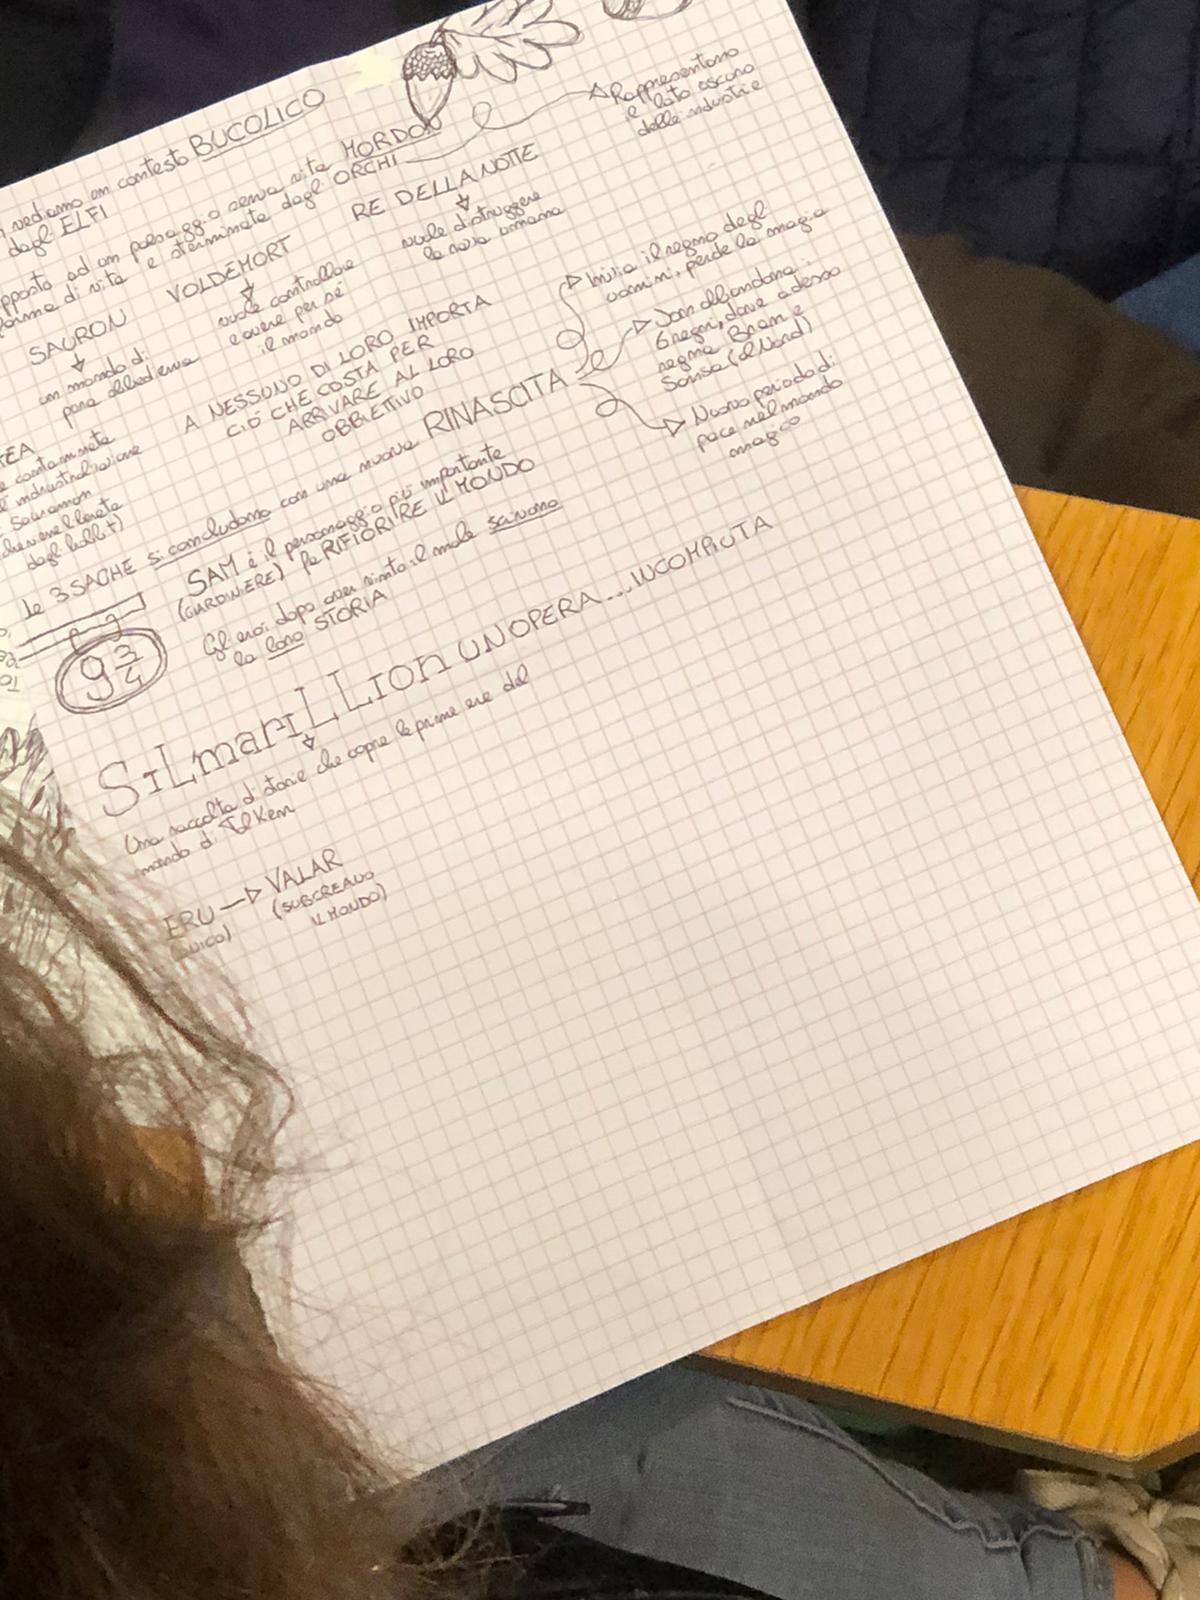 vediamo un contesto BUCOLICO
dagli ELFI
opposto ad un paesaggio senza vita MORDOR
forma di vita e sterminata dagli ORCHI
Rappresentano
il lato oscuro
delle industrie
SAURON
un mondo di
pura obbedienza
VOLDEMORT
vuole controllare
e avere per sé
il mondo
RE DELLA NOTTE
vuole distruggere
la razza umana
A NESSUNO DI LORO IMPORTA
CIÒ CHE COSTA PER
ARRIVARE AL LORO
OBBIETTIVO
TEA
contaminata
industrializzazione
Saruman
che viene liberata
dagli hobbit)
le 3 SAGHE si concludono con una nuova RINASCITA
Inizia il regno degli
uomini, perde la magia
Jon abbandona i
6 regni, dove adesso
regna Bran e
Sansa (al Nord)
Nuovo periodo di
pace nel mondo
magico
SAM è il personaggio più importante
(GIARDINIERE) fa RIFIORIRE IL MONDO
Gli eroi dopo aver vinto il male scrivono
la loro STORIA
9 3/4
SiLmariLLion UN OPERA ... INCOMPIUTA
Una raccolta di storie che copre le prime ere del
mondo di Tolkien
ERU → VALAR
(UNICO) (SUBCREANO
IL MONDO)